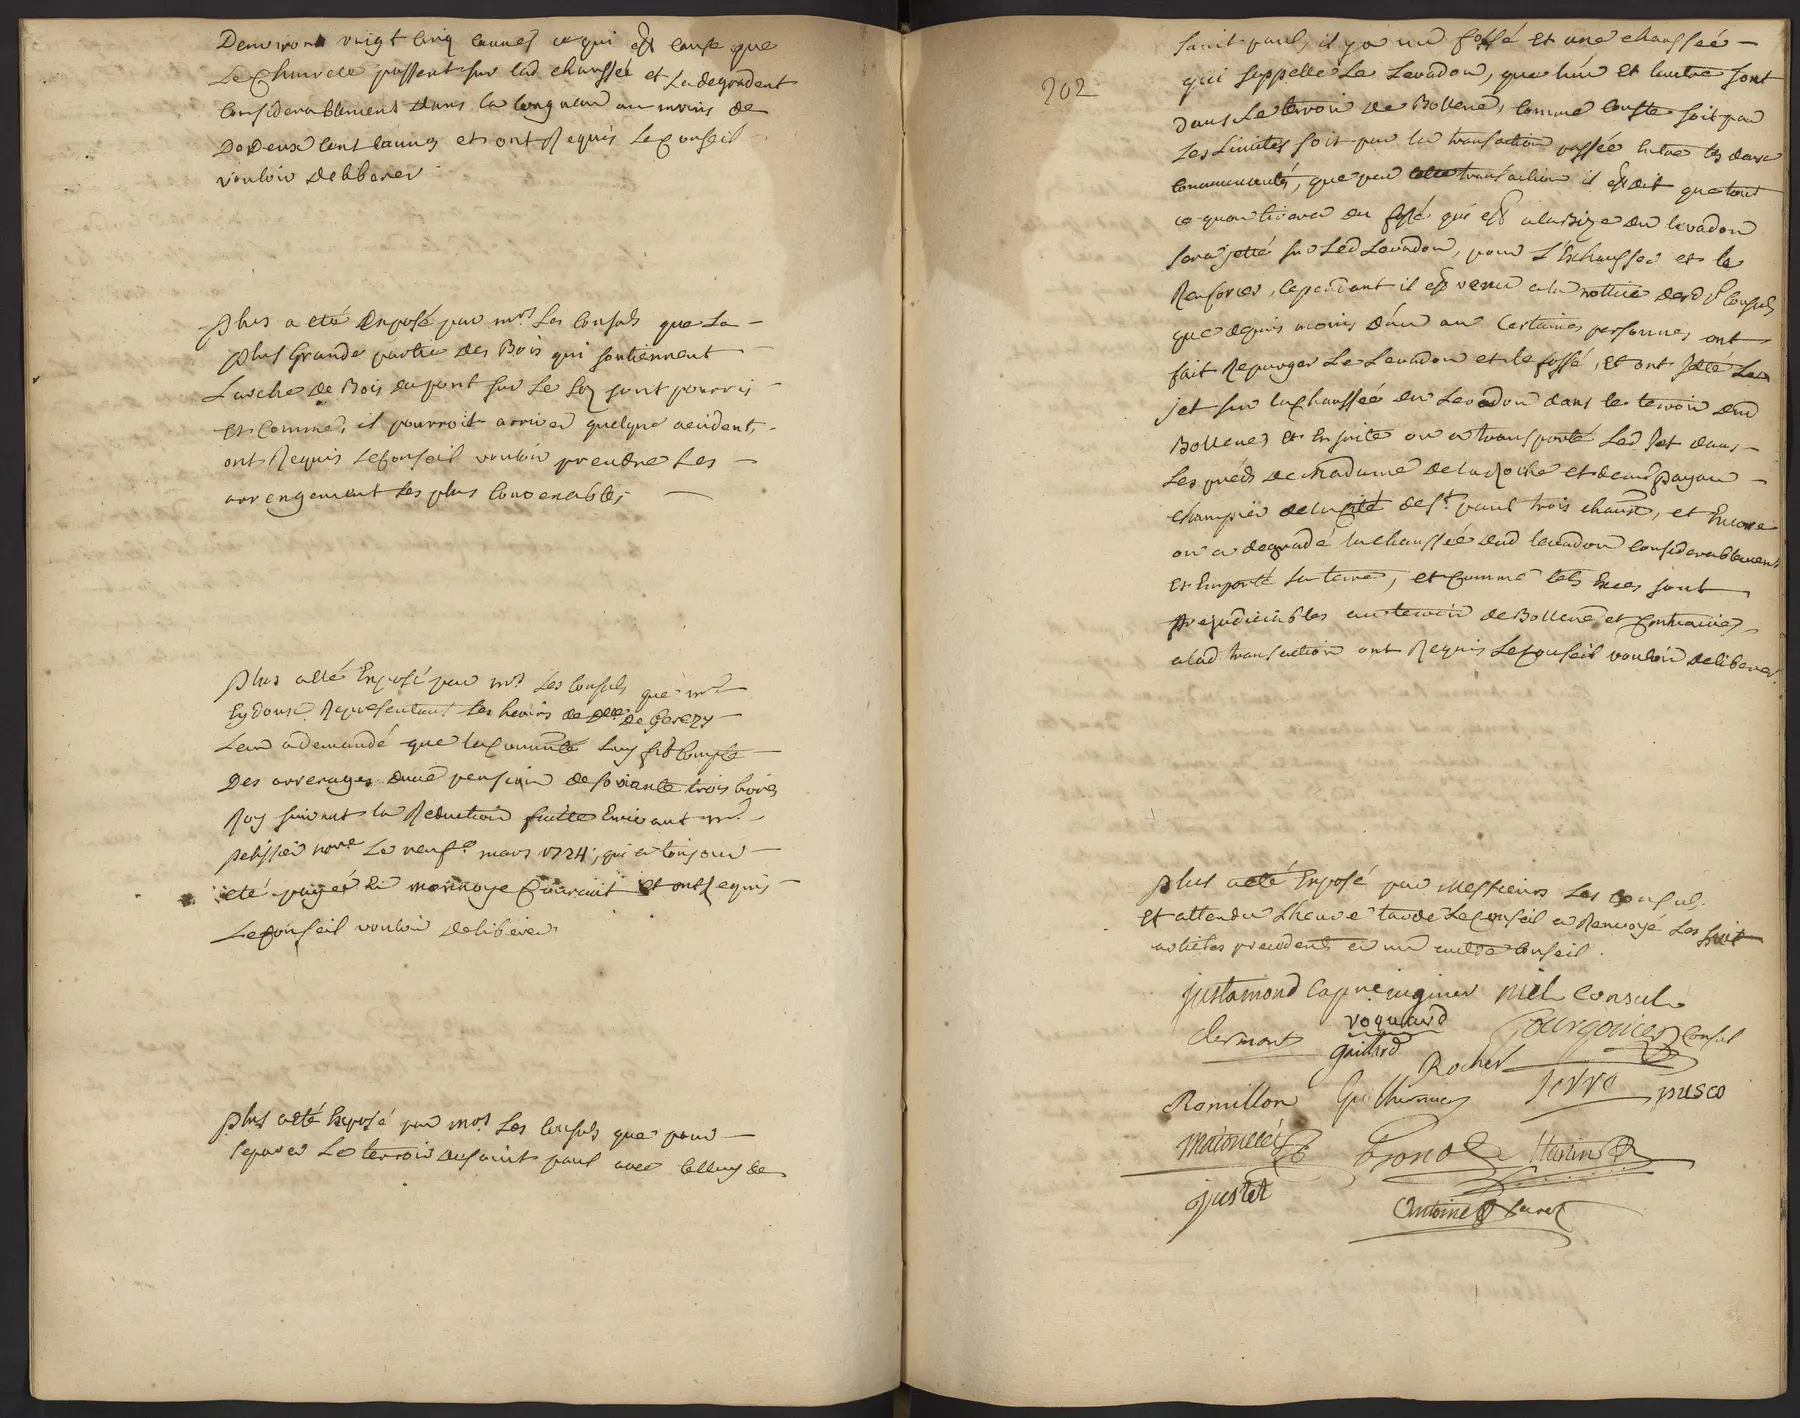 Denviron vingt cinq cannes ce qui est cause que
Le passent sur lad chaussée et La degradent
Considerablement dans la longueur au moins de
De Deux cent cannes et ont Requis Le Conseil
vouloir Deliberer
Plus a eté Exposé par mrs Les Consuls que La
plus Grande partie des Bois qui soutiennent
Larche De Bois du pont sur Le Lez sont pourris
Et comme, il pourroit arriver quelque accident,
ont Requis Le Conseil vouloir prendre Les
arrengement Les plus Convenables,
Plus a eté Exposé par mrs Les Consuls que mr
Eydoux Representant Les hoirs de De
a demandé que la Commté Luy fit Compte
Des arrerages dune pension de soixante trois livres
Roy suivant la Reduction faitte Ecrivant mr
pelissier nore Le neufe mars 1724, qui a toujour
eté payée En monnoye Courant Et ont Requis
Le Conseil vouloir deliberer
Plus a eté Exposé par mrs Les Consuls que pour
separer Le terroir de saint paul avec celluy de
202
saint paul, il y a un fossé Et une chaussée
qui sappelle Le Levadon, que lun Et lautre sont
dans Le terroir De Bollene, comme conste soit par
Les Limites soit par la transaction passée Entre les deux
Communautés, que par transaction il est dit que tout
ce quon tirera du fossé qui est a la Bize du levadon
sera jetté sur Led Levadon, pour L'Exhausser et le
Renforcer, cependant il est venu a la nottice desd srs Consuls
que depuis moins dun an Certaines personnes ont
fait Repurger Le Levadon et le fossé, Et ont jetté Le
jet sur la chaussée du Levadon dans le terroir dud
Bollene, et Ensuite on a transporté Led Jet dans
Les préds de Madame de la Roche et de mr payan
champier de la Cité de st paul trois chaux, et Encore
on a degradé la chaussée dud levadon considerablement
Et Emporté La terre, et comme tels Exces sont
prejudiciables au terroir de Bollene et Contraires
a lad transaction ont Requis Le Conseil vouloir deliberer
Plus a eté Exposé par Messieurs Les Consuls
Et attendu Lheure tarde Le Conseil a Renvoyé Les
articles precedents a un autre Conseil.
Justamond niel Consul
Clermont Roquard Gourgonier Consul
Guillard
Rocher
Romillon Guilhermier Serre pusco
Pronol Martin
Justet
Antoine